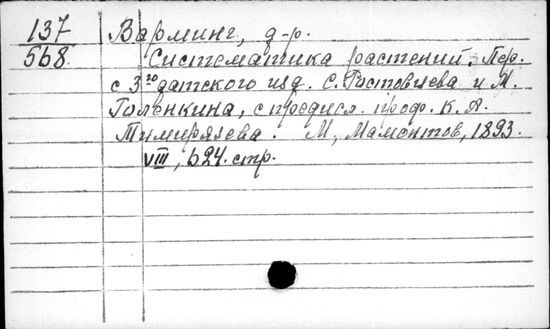 137 Варминг, д-р.
568. Систематика растений. Пер.
с 3го датского изд. С. Ростовцева и М.
Голенкина, с предисл. проф. К. А.
Тимирязева. М., Мамонтов, 1893.
VIII, 624. стр.